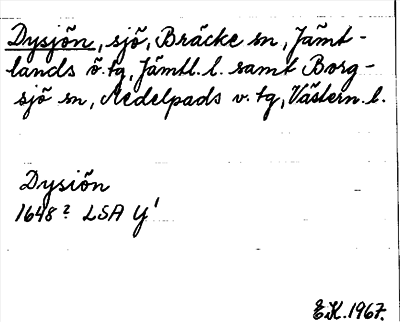 Dysjön, sjö, Bräcke sn, Jämt-
lands ö. tg, Jämtl. l. samt Borg-
sjö sn, Medelpads v. tg, Västern. l.
Dysiön
1648? LSA Y'
E.K. 1967.